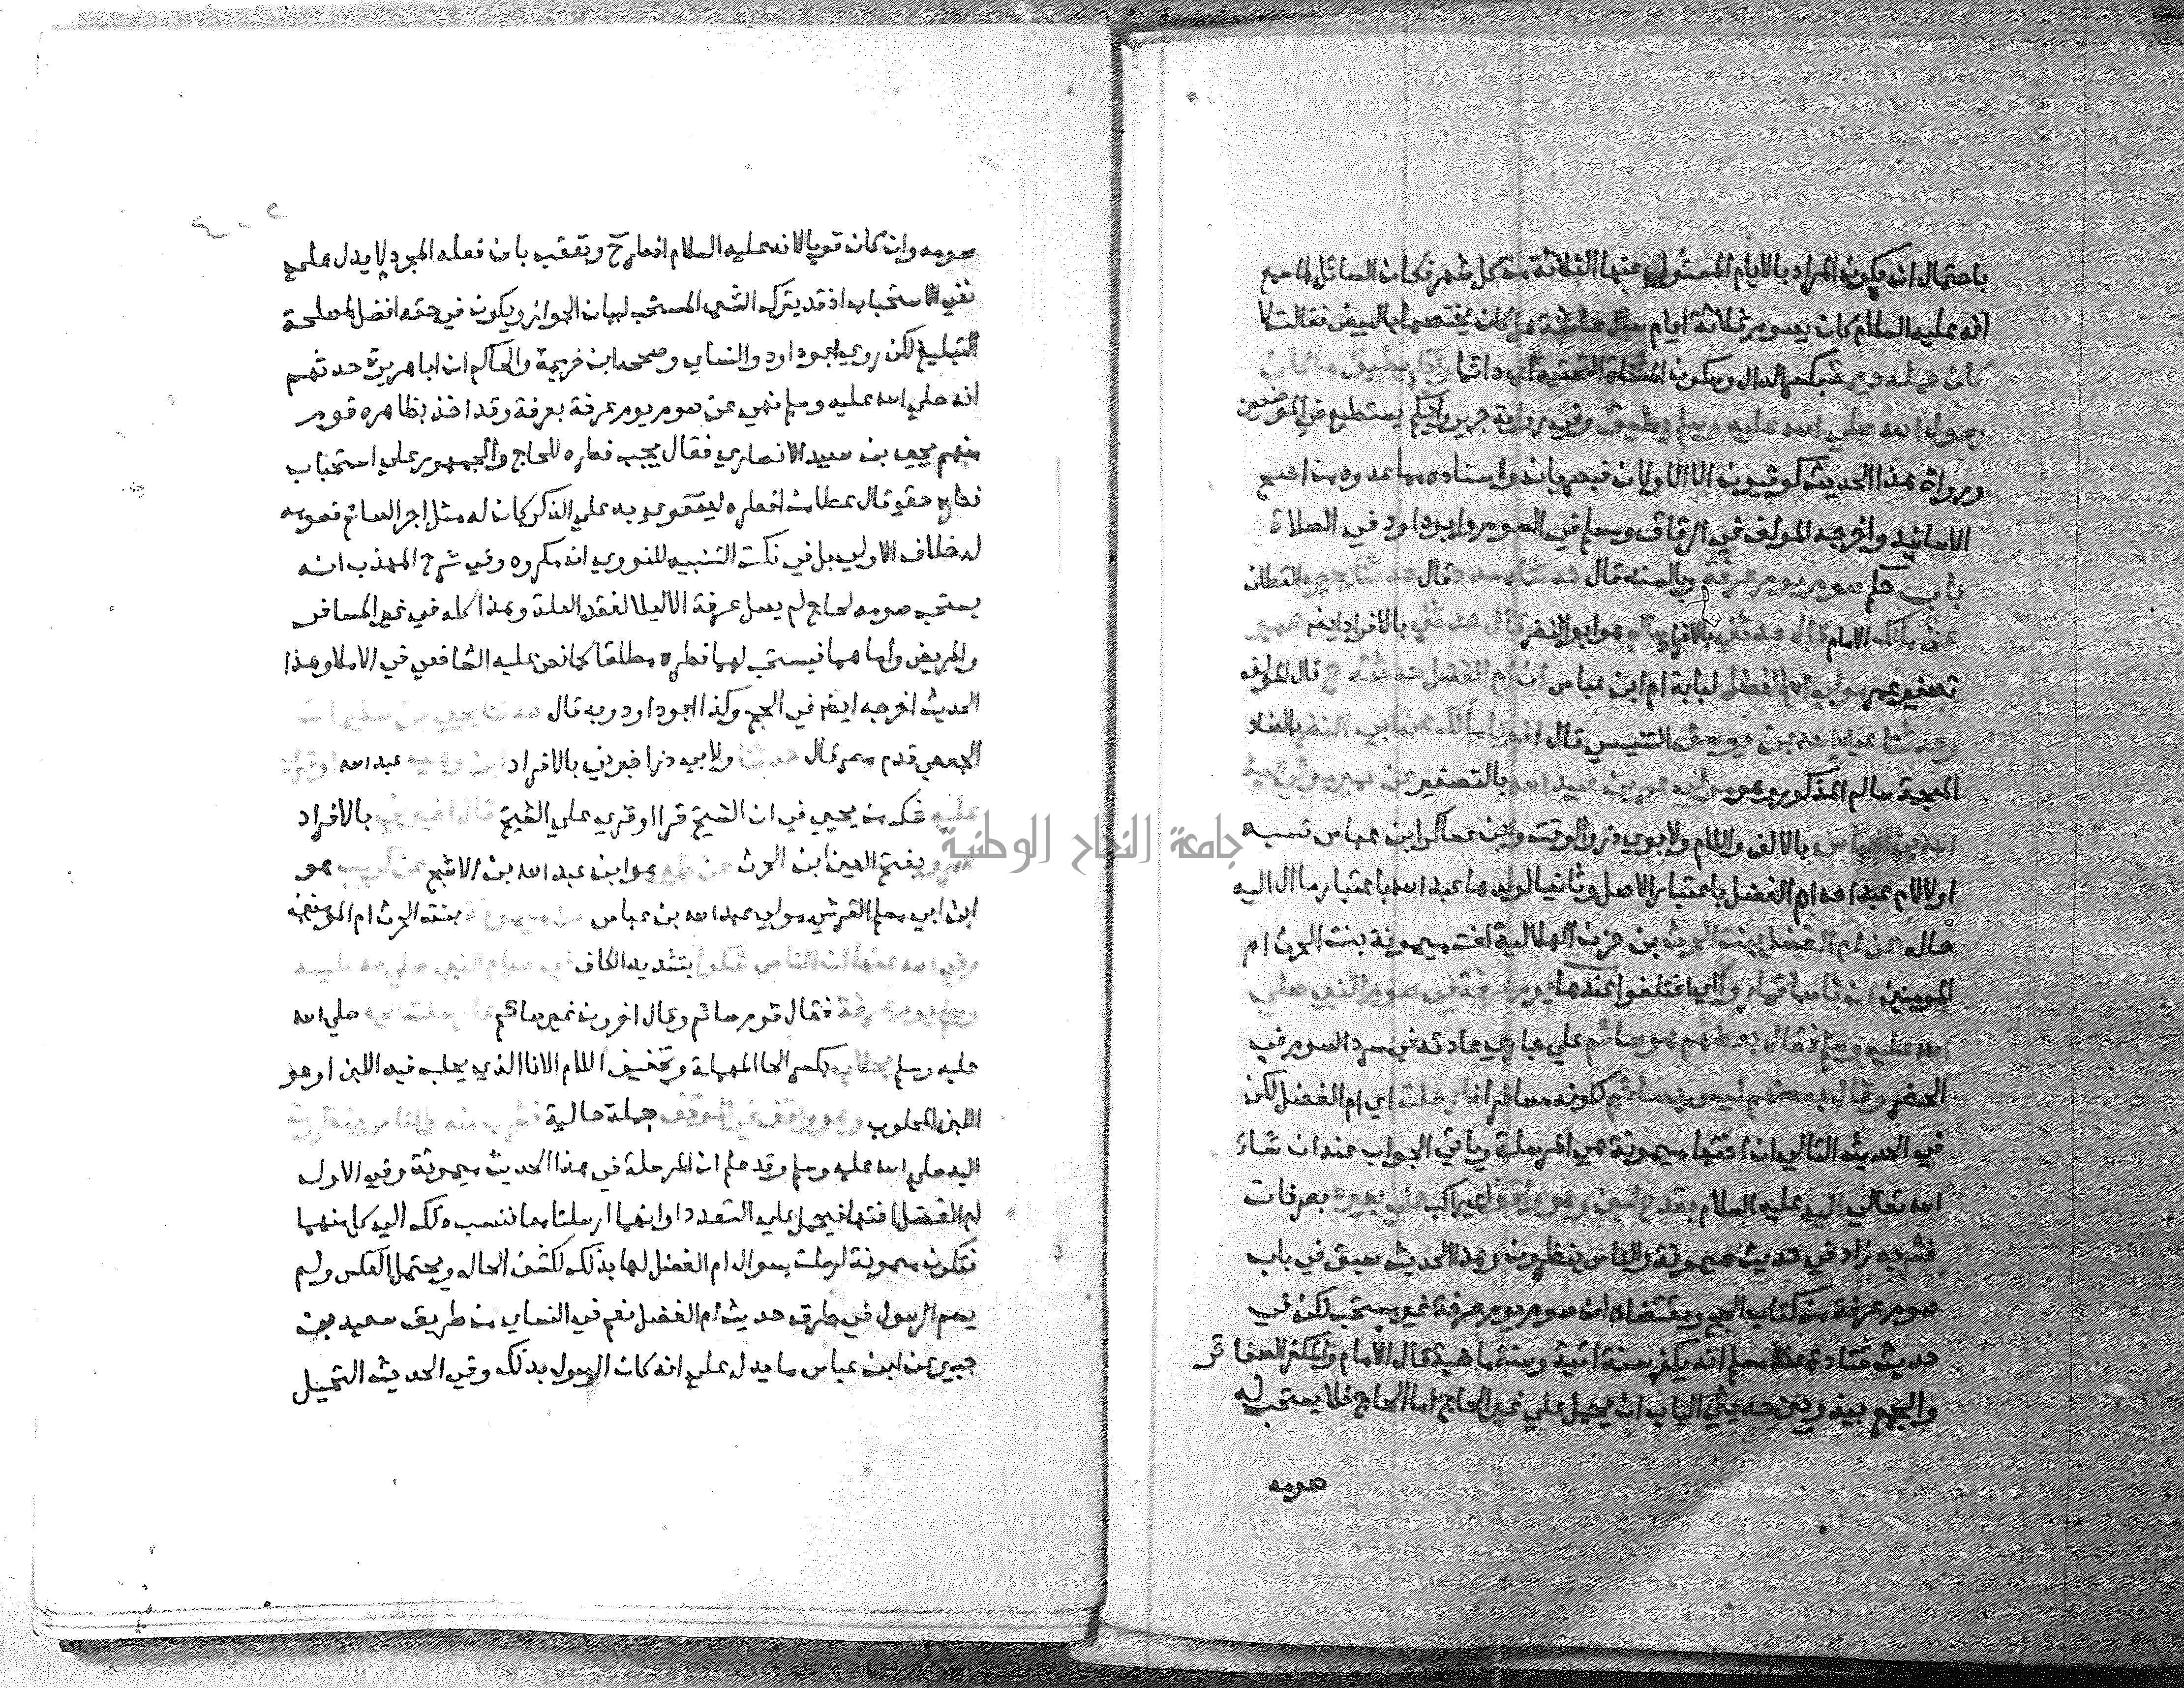 باحتمال ان يكون المراد بالايام المسئول عنها الثلاثة من كل شهر فكان السائل لما سمع
انه عليه السلام كان يصوم ثلاثة ايام سال عائشة هل كان يختصها بالبيض فقالت لا
كان عمله ديمة بكسر الدال وسكون المثناة التحتية اي دائما وايكم يطيق ما كان
رسول الله صلي الله عليه وسلم يطيق وفي رواية جرير وايكم يستطيع في الموضعين
ورواة هذا الحديث كوفيون الا الاولان فبصريان واسناده مما عدوه من اصح
الاسانيد واخرجه المولف في الرقاق ومسلم في الصوم وابو داود في الصلاة
باب حكم صوم يوم عرفة وبالسند قال حدثنا مسدد قال حدثنا يحيي القطان
عن مالك الامام قال حدثني بالافراد سالم هو ابو النضر قال حدثني بالافراد ايضا عمير
تصغير عمر مولي ام الفضل لبابة ام ابن عباس ان ام الفضل حدثته ح قال المولف
وحدثنا عبد الله بن يوسف التنيسي قال اخبرنا مالك عن ابي النضر بالضاد
المعجمة سالم المذكور وهو مولي عمر بن عبيد الله بالتصغير عن عمير مولي عبد
الله بن العباس بالالف واللام ولابوي ذر والوقت وابن عساكر ابن عباس نسبه
اولا لام عبد الله ام الفضل باعتبار الاصل وثانيا لولدها عبد الله باعتبار ما ال اليه
حاله عن ام الفضل بنت الحرث بن حزن الهلالية اخت ميمونة بنت الحرث ام
المومنين ان ناسا تماروا اي اختلفوا عندها يوم عرفة في صوم النبي صلي
الله عليه وسلم فقال بعضهم هو صائم علي جاري عادته في سرد الصوم في
الحضر وقال بعضهم ليس بصائم لكونه مسافرا فارسلت اي ام الفضل لكن
في الحديث التالي ان اختها ميمونة هي المرسلة وياتي الجواب عنه ان شاء
الله تعالي اليه عليه السلام بقدح لبن وهو واقف اي راكب علي بعيره بعرفات
فشربه زاد في حديث ميمونة والناس ينظرون وهذا الحديث سبق في باب
صوم عرفة من كتاب الحج ومقتضاه ان صوم يوم عرفة غير مستحب لكن في
حديث قتادة عند مسلم انه يكفر سنة اتية وسنة ماضية قال الامام والمكفر الصغائر
والجمع بينه وبين حديثي الباب ان يحمل علي غير الحاج اما الحاج فلا يستحب له
صومه
صومه وان كان قويا لانه عليه السلام افطر ح وتعقب بان فعله المجرد لا يدل علي
نفي الاستحباب اذ قد يترك الشي المستحب لبيان الجواز ويكون في حقه افضل لمصلحة
التبليغ لكن روي ابو داود والنساي وصححه ابن خزيمة والحاكم ان ابا هريرة حدثهم
انه صلي الله عليه وسلم نهي عن صوم يوم عرفة بعرفة وقد اخذ بظاهره قوم
منهم يحيي بن سعيد الانصاري فقال يجب فطره للحاج والجمهور علي استحباب
فطره حتي قال عطا من افطره ليتقوي به علي الذكر كان له مثل اجر الصائم فصومه
له خلاف الاولي بل في نكت التنبيه للنووي انه مكروه وفي شرح المهذب انه
يستحب صومه لحاج لم يصل عرفة الا ليلا لفقد العلة وهذا كله في غير المسافر
والمريض واما هما فيستحب لهما فطره مطلقا كما نص عليه الشافعي في الاملا وهذا
الحديث اخرجه ايضا في الحج وكذا ابو داود وبه قال حدثنا يحيي بن سليمان
الجعفي قدم مصر قال حدثنا ولابي ذر اخبرني بالافراد ابن وهب عبد الله او قري
عليه شك من يحيي في ان الشيخ قرا او قري علي الشيخ قال اخبرني بالافراد
عمرو بفتح العين ابن الحرث عن بكير هو ابن عبد الله بن الاشج عن كريب هو
ابن ابي مسلم القرشي مولي عبد الله بن عباس عن ميمونة بنت الحرث ام المومنين
رضي الله عنها ان الناس شكوا بتشديد الكاف في صيام النبي صلي الله عليه
وسلم يوم عرفة فقال قوم صائم وقال اخرون غير صائم فارسلت اليه صلي الله
عليه وسلم بحلاب بكسر الحا المهملة وتخفيف اللام الانا الذي يحلب فيه اللبن او هو
اللبن المحلوب وهو واقف في الموقف جملة حالية فشرب منه والناس ينظرون
اليه صلي الله عليه وسلم وقد علم ان المرسلة في هذا الحديث ميمونة وفي الاول
ام الفضل اختها فيحمل علي التعدد او انهما ارسلتا معا فنسب ذلك الي كل منهما
فتكون ميمونة ارسلت بسوال ام الفضل لها بذلك لكشف الحال ويحتمل العكس ولم
يسم الرسول في طرق حديث ام الفضل نعم في النساي من طريق سعيد بن
جبير عن ابن عباس ما يدل علي انه كان الرسول بذلك وفي الحديث التحيل
جامعة النجاح الوطنية